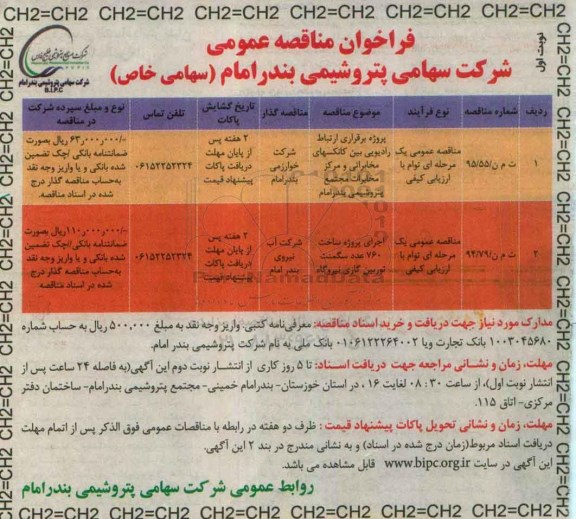 CH2=CH2 CH2=CH2 CH2=CH2 CH2=CH2 CH2=CH2 CH2=CH2
نوبت اول
فراخوان مناقصه عمومی
شرکت سهامی پتروشیمی بندرامام (سهامی خاص)
شرکت سهامی پتروشیمی بندرامام
B.I.P.C
ردیف شماره مناقصه نوع فرآیند موضوع مناقصه مناقصه گذار تاریخ گشایش پاکات تلفن تماس نوع و مبلغ سپرده شرکت در مناقصه
۱ ت م ن/۹۵/۵۵ مناقصه عمومی یک مرحله ای توام با ارزیابی کیفی پروژه برقراری ارتباط رادیویی بین کانکسهای مخابراتی و مرکز مخابرات مجتمع پتروشیمی بندرامام شرکت خوارزمی بندرامام ۲ هفته پس از پایان مهلت دریافت پاکات پیشنهاد قیمت ۰۶۱۵۲۲۵۲۳۲۴ -/۶۳٫۰۰۰٫۰۰۰ ریال بصورت ضمانتنامه بانکی /چک تضمین شده بانکی و یا واریز وجه نقد به‌حساب مناقصه گذار درج شده در اسناد مناقصه.
۲ ت م ن/۹۴/۷۹ مناقصه عمومی یک مرحله ای توام با ارزیابی کیفی اجرای پروژه ساخت ۷۶۰ عدد سگمنت توربین گازی نیروگاه شرکت آب نیروی بندر امام ۲ هفته پس از پایان مهلت دریافت پاکات پیشنهاد قیمت ۰۶۱۵۲۲۵۲۳۲۴ -/۱۱۰٫۰۰۰٫۰۰۰ریال بصورت ضمانتنامه بانکی /چک تضمین شده بانکی و یا واریز وجه نقد به‌حساب مناقصه گذار درج شده در اسناد مناقصه
مدارک مورد نیاز جهت دریافت و خرید اسناد مناقصه: معرفی‌نامه کتبی، واریز وجه نقد به مبلغ ۵۰۰,۰۰۰ ریال به حساب شماره
۱۰۰۳۰۴۵۶۸۰ بانک تجارت ویا ۰۱۰۶۱۲۲۲۶۴۰۰۲ بانک ملی به نام شرکت پتروشیمی بندر امام.
مهلت، زمان و نشانی مراجعه جهت دریافت اسناد: تا ۵ روز کاری از انتشار نوبت دوم این آگهی(به فاصله ۲۴ ساعت پس از
انتشار نوبت اول)، از ساعت ۳۰ : ۰۸ لغایت ۱۶ ، در استان خوزستان- بندرامام خمینی- مجتمع پتروشیمی بندرامام- ساختمان دفتر
مرکزی- اتاق ۱۱۵.
مهلت، زمان و نشانی تحویل پاکات پیشنهاد قیمت : ظرف دو هفته در رابطه با مناقصات عمومی فوق الذکر پس از اتمام مهلت
دریافت اسناد مربوط(زمان درج شده در اسناد) و به نشانی مندرج در بند ۲ این آگهی.
این آگهی در سایت www.bipc.org.ir قابل مشاهده می باشد.
روابط عمومی شرکت سهامی پتروشیمی بندرامام
CH2=CH2 CH2=CH2 CH2=CH2 CH2=CH2 CH2=CH2 CH2=CH2